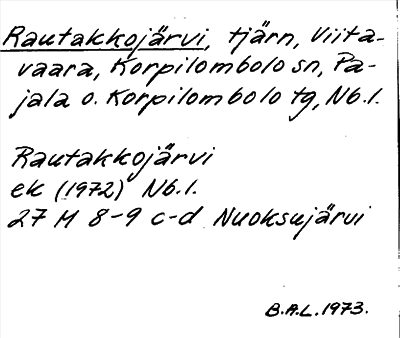 Rautakkojärvi, tjärn, Viita-
vaara, Korpilombolo sn, Pa-
jala o. Korpilombolo tg, Nb.l.
Rautakkojärvi
ek (1972) Nb.l.
27 M 8-9 c-d Nuoksujärvi
B.A.L. 1973.